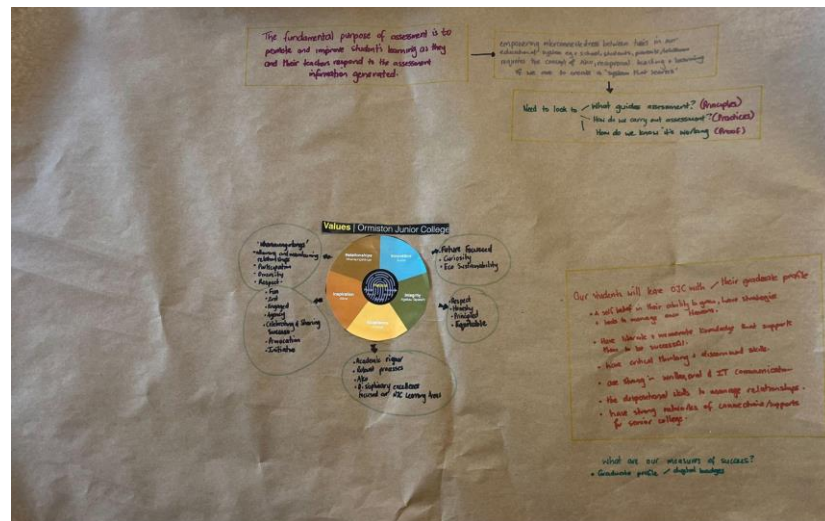 The fundamental purpose of assessment is to
promote and improve students learning as they
and their teachers respond to the assessment
information generated.
empowering interconnectedness between tiers in our
education system eg school, students, parents/whānau
requires the concept of Ako, reciprocal teaching & learning
if we are to create a 'system that learns'
Need to look to What guides assessment? (Principles)
How do we carry out assessment? (Practices)
How do we know it's working (Proof)
Values | Ormiston Junior College
Relationships
Innovation
Inspiration
Integrity
Whanaungatanga
relationships
Participation
Diversity
Respect
Fun
Engaged
Agency
Celebrating & Sharing
Success
Provocation
Initiative
Future Focussed
Curiosity
Eco Sustainability
Respect
Honesty
Principled
Equitable
Academic rigour
Robust processes
Ako
Disciplinary excellence
Learning Areas
Our students will leave OJC with their graduate profile
a self belief in their ability to grow, have strategies
& tools to manage own
have literate & numerate knowledge that supports
them to be successful.
have critical thinking & discernment skills.
are strong in written, oral & IT communication
the dispositional skills to manage relationships.
have strong networks of connections/supports
for senior college.
what are our measure of success?
Graduate profile / digital badges